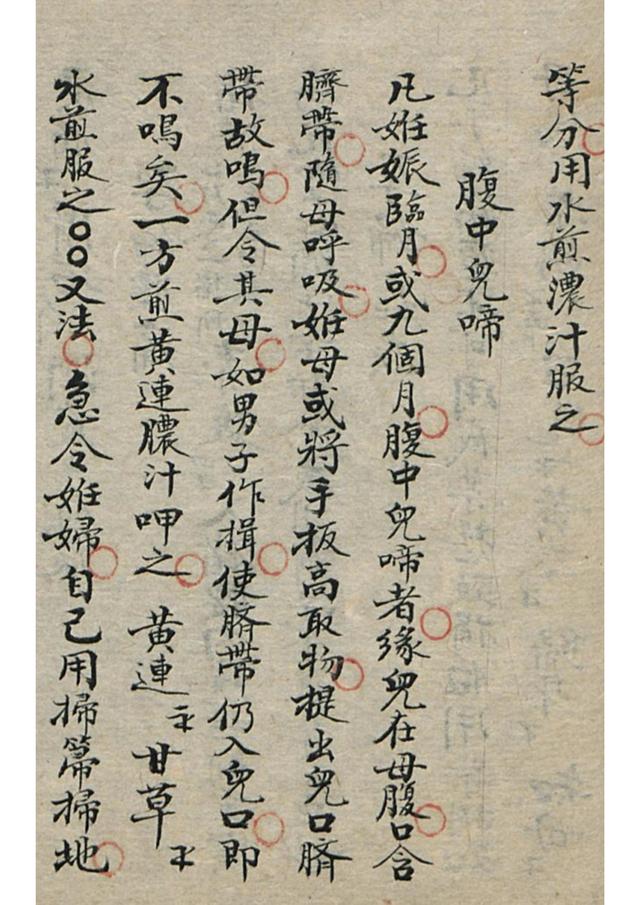 等分用水煎濃汁服之
腹中兒啼
凡姙娠臨月或九個月腹中兒啼者缘兒在母腹口含
臍帶隨母呼吸姙母或將手扳高取物提出兒口臍
帶故鳴但令其母如男子作揖使臍帶仍入兒口即
不鳴矣一方煎黄連膿汁呷之 黄連 甘草
水煎服之〇〇又法 急令姙婦自己用掃箒掃地